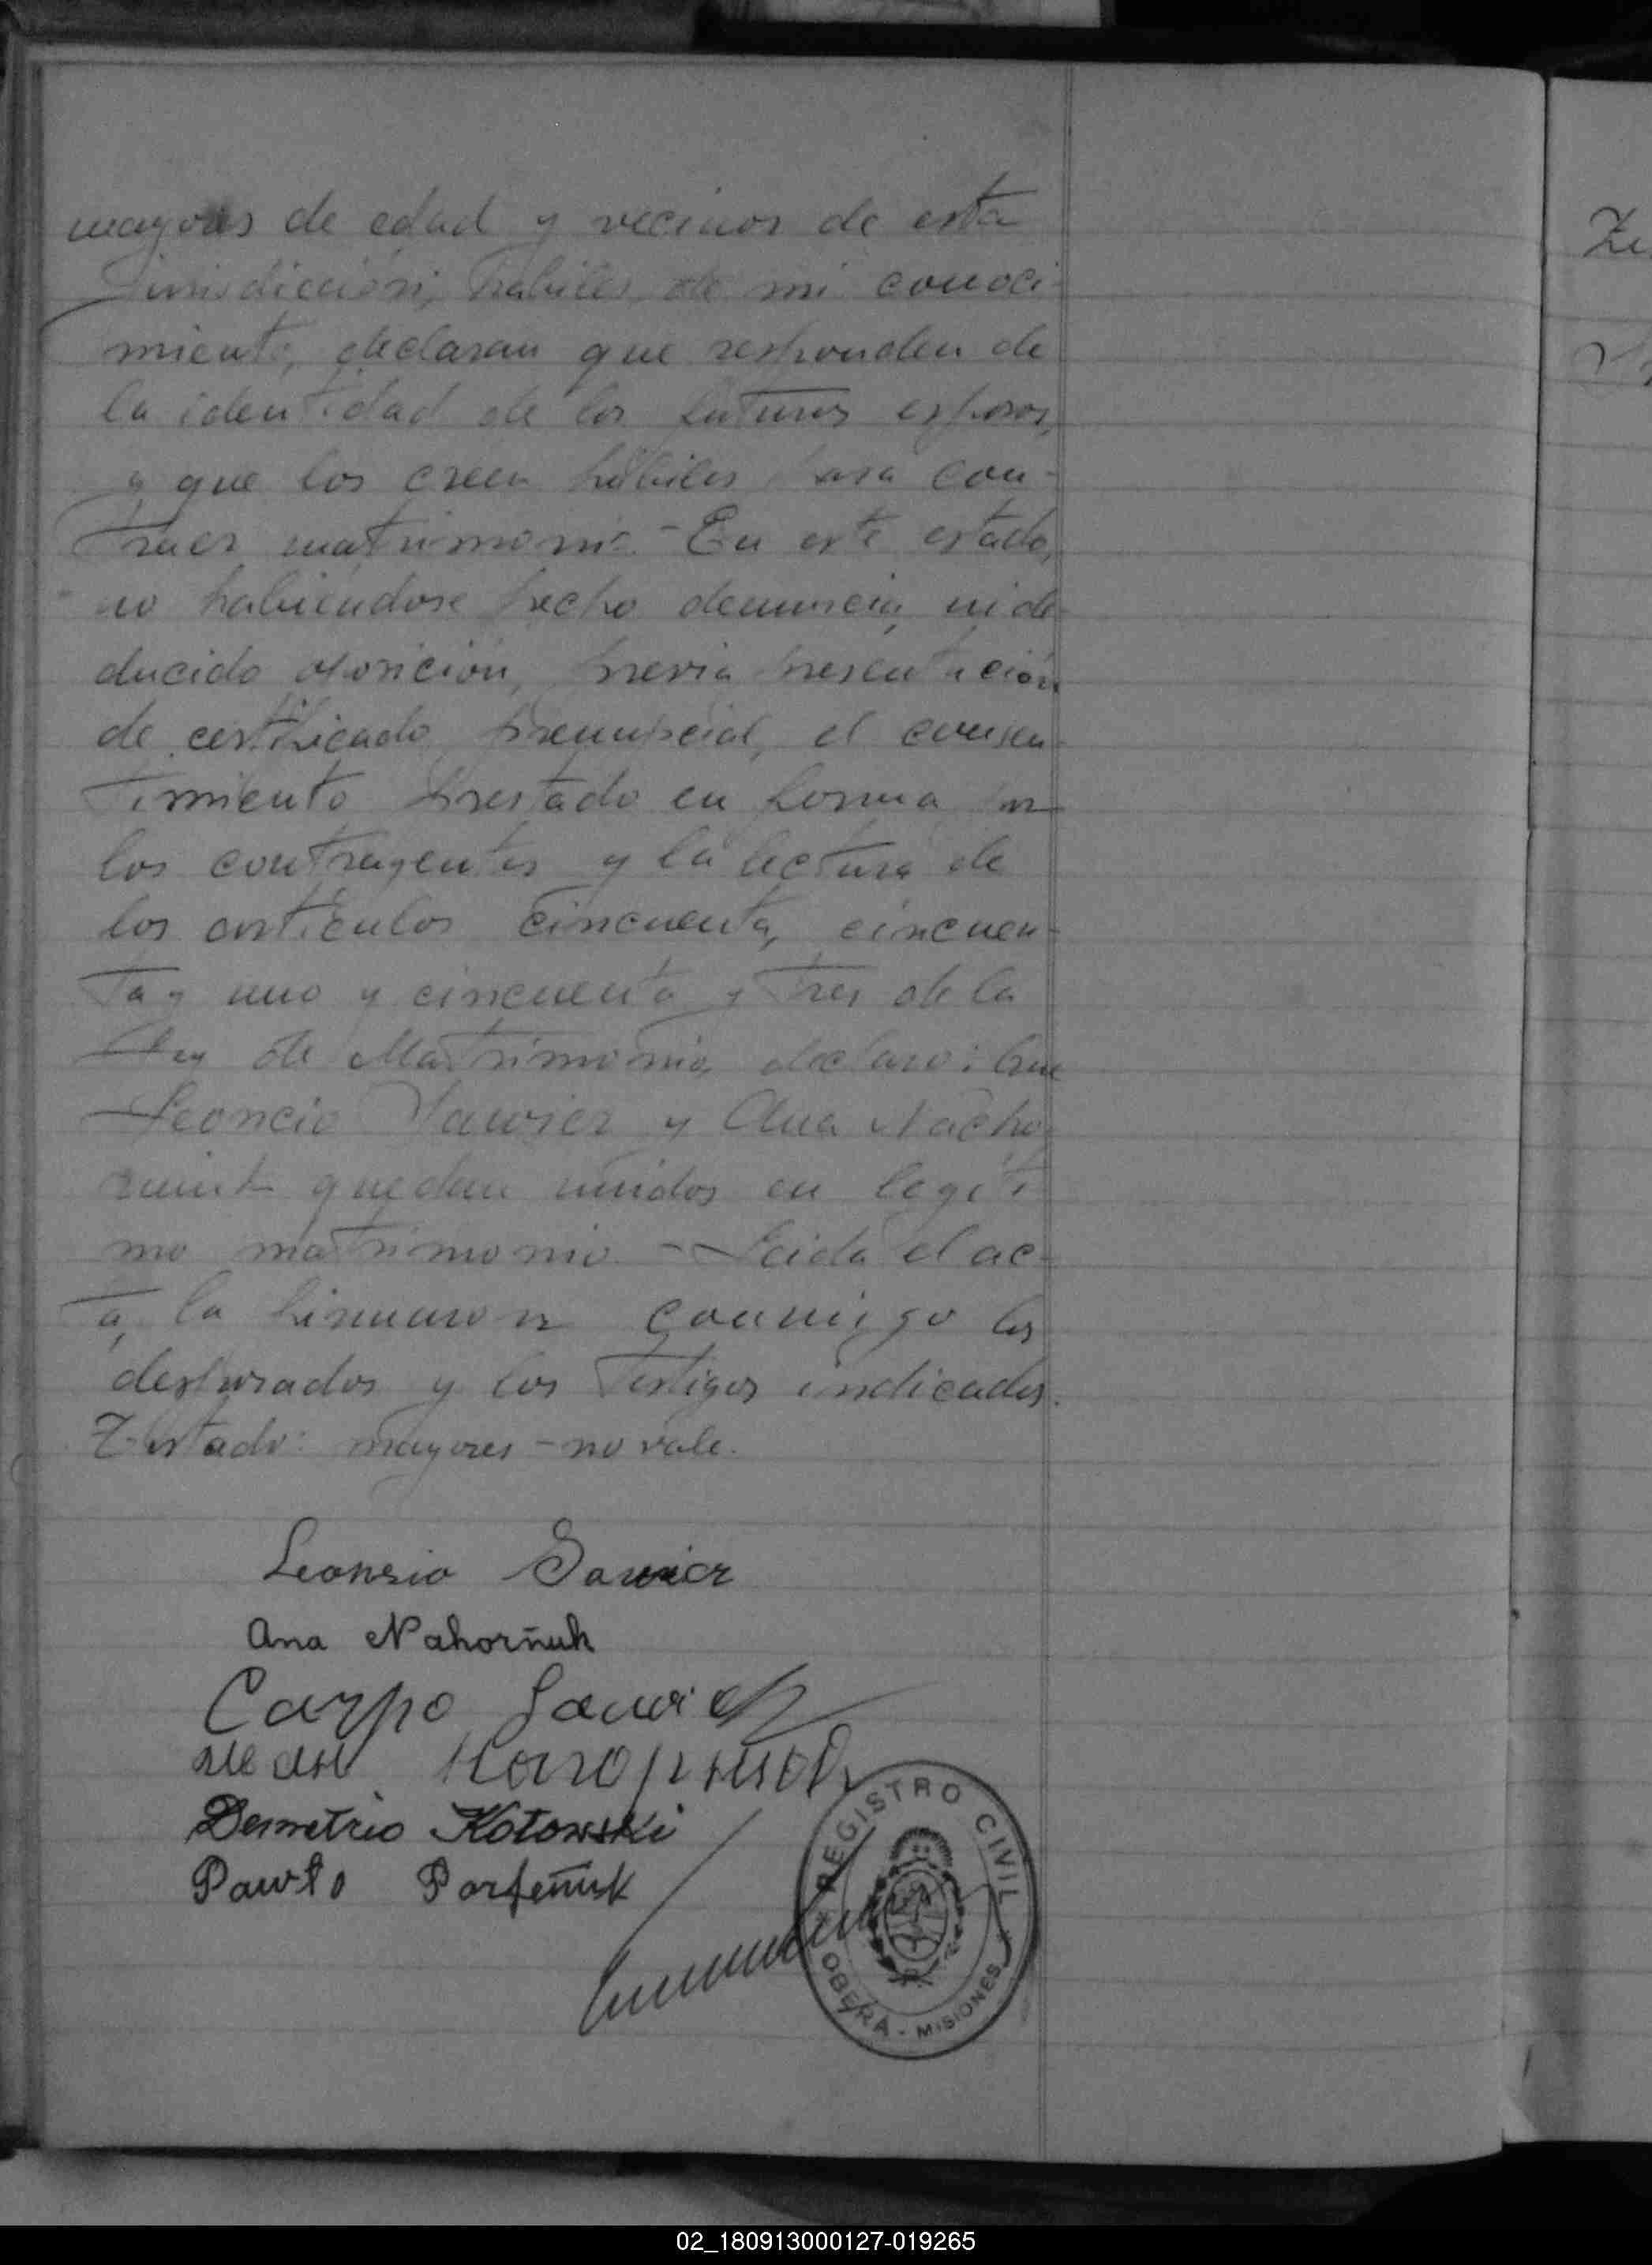 mayores de edad y vecinos de esta
jurisdicción, habiles, de mi conoci-
miento, declaran que responden de
la identidad de los futuros esposos,
y que los creen hábiles para con-
traer matrimonio.- En este estado,
no habiéndose hecho denuncia, ni de-
ducido oposición, previa presentación
de certificado prenupcial, el consen-
timiento prestado en forma por
los contrayentes y la lectura de
los artículos cincuenta, cincuen-
ta y uno y cincuenta y tres de la
Ley de Matrimonio, declaro: Que
Leoncio Sawicz y Ana Nacho
quedan unidos en legíti
mo matrimonio.- Leida el ac-
ta, la firmaron conmigo los
desposados y los testigos indicados.
Testado: mayores - no vale.
Leonsio Sawicz
Ana Nahorñuk
Carpo Sawicz
Demetrio Kotowski
Pawło Parfeñuk
REGISTRO CIVIL
OBERÁ - MISIONES
02_180913000127-019265